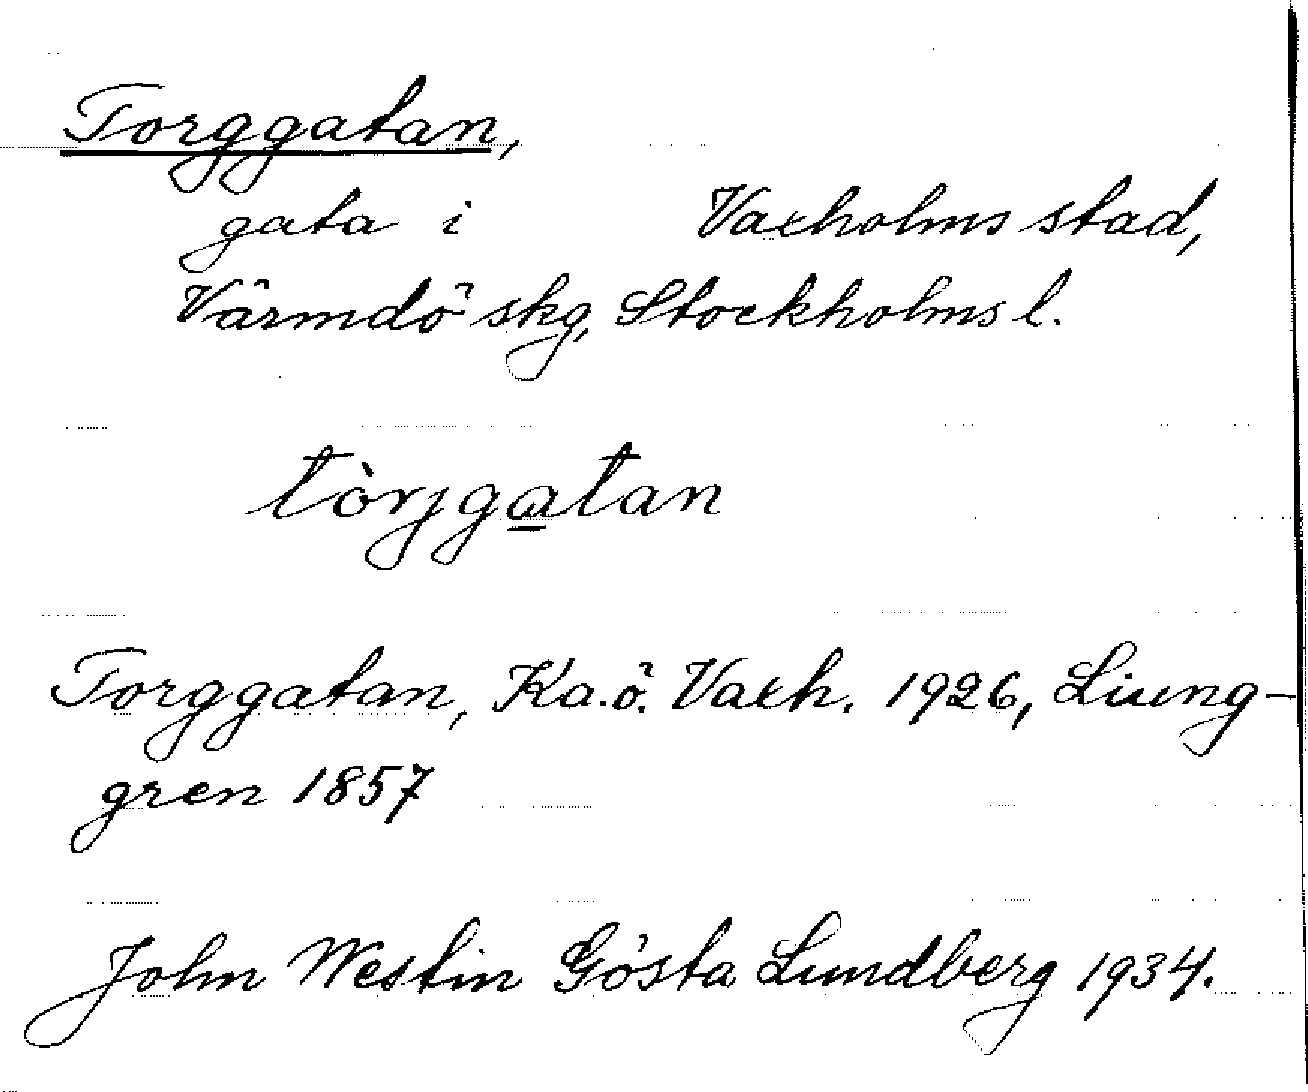 Torggatan,
gata i Vaxholms stad,
Värmdö skg, Stockholms l.
tòrjgatan
Torggatan, Ka.ö. Vaxh. 1926, Liung-
gren 1857
John Westin Gösta Lundberg 1934.